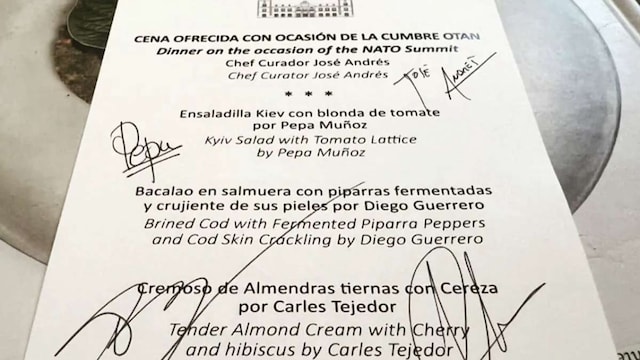 CENA OFRECIDA CON OCASIÓN DE LA CUMBRE OTAN
Dinner on the occasion of the NATO Summit
Chef Curador José Andrés
Chef Curator José Andrés
JOSÉ ANDRÉS
* * *
Ensaladilla Kiev con blonda de tomate
por Pepa Muñoz
Pepa
Kyiv Salad with Tomato Lattice
by Pepa Muñoz
Bacalao en salmuera con piparras fermentadas
y crujiente de sus pieles por Diego Guerrero
Brined Cod with Fermented Piparra Peppers
and Cod Skin Crackling by Diego Guerrero
Cremoso de Almendras tiernas con Cereza
por Carles Tejedor
Tender Almond Cream with Cherry
and hibiscus by Carles Tejedor